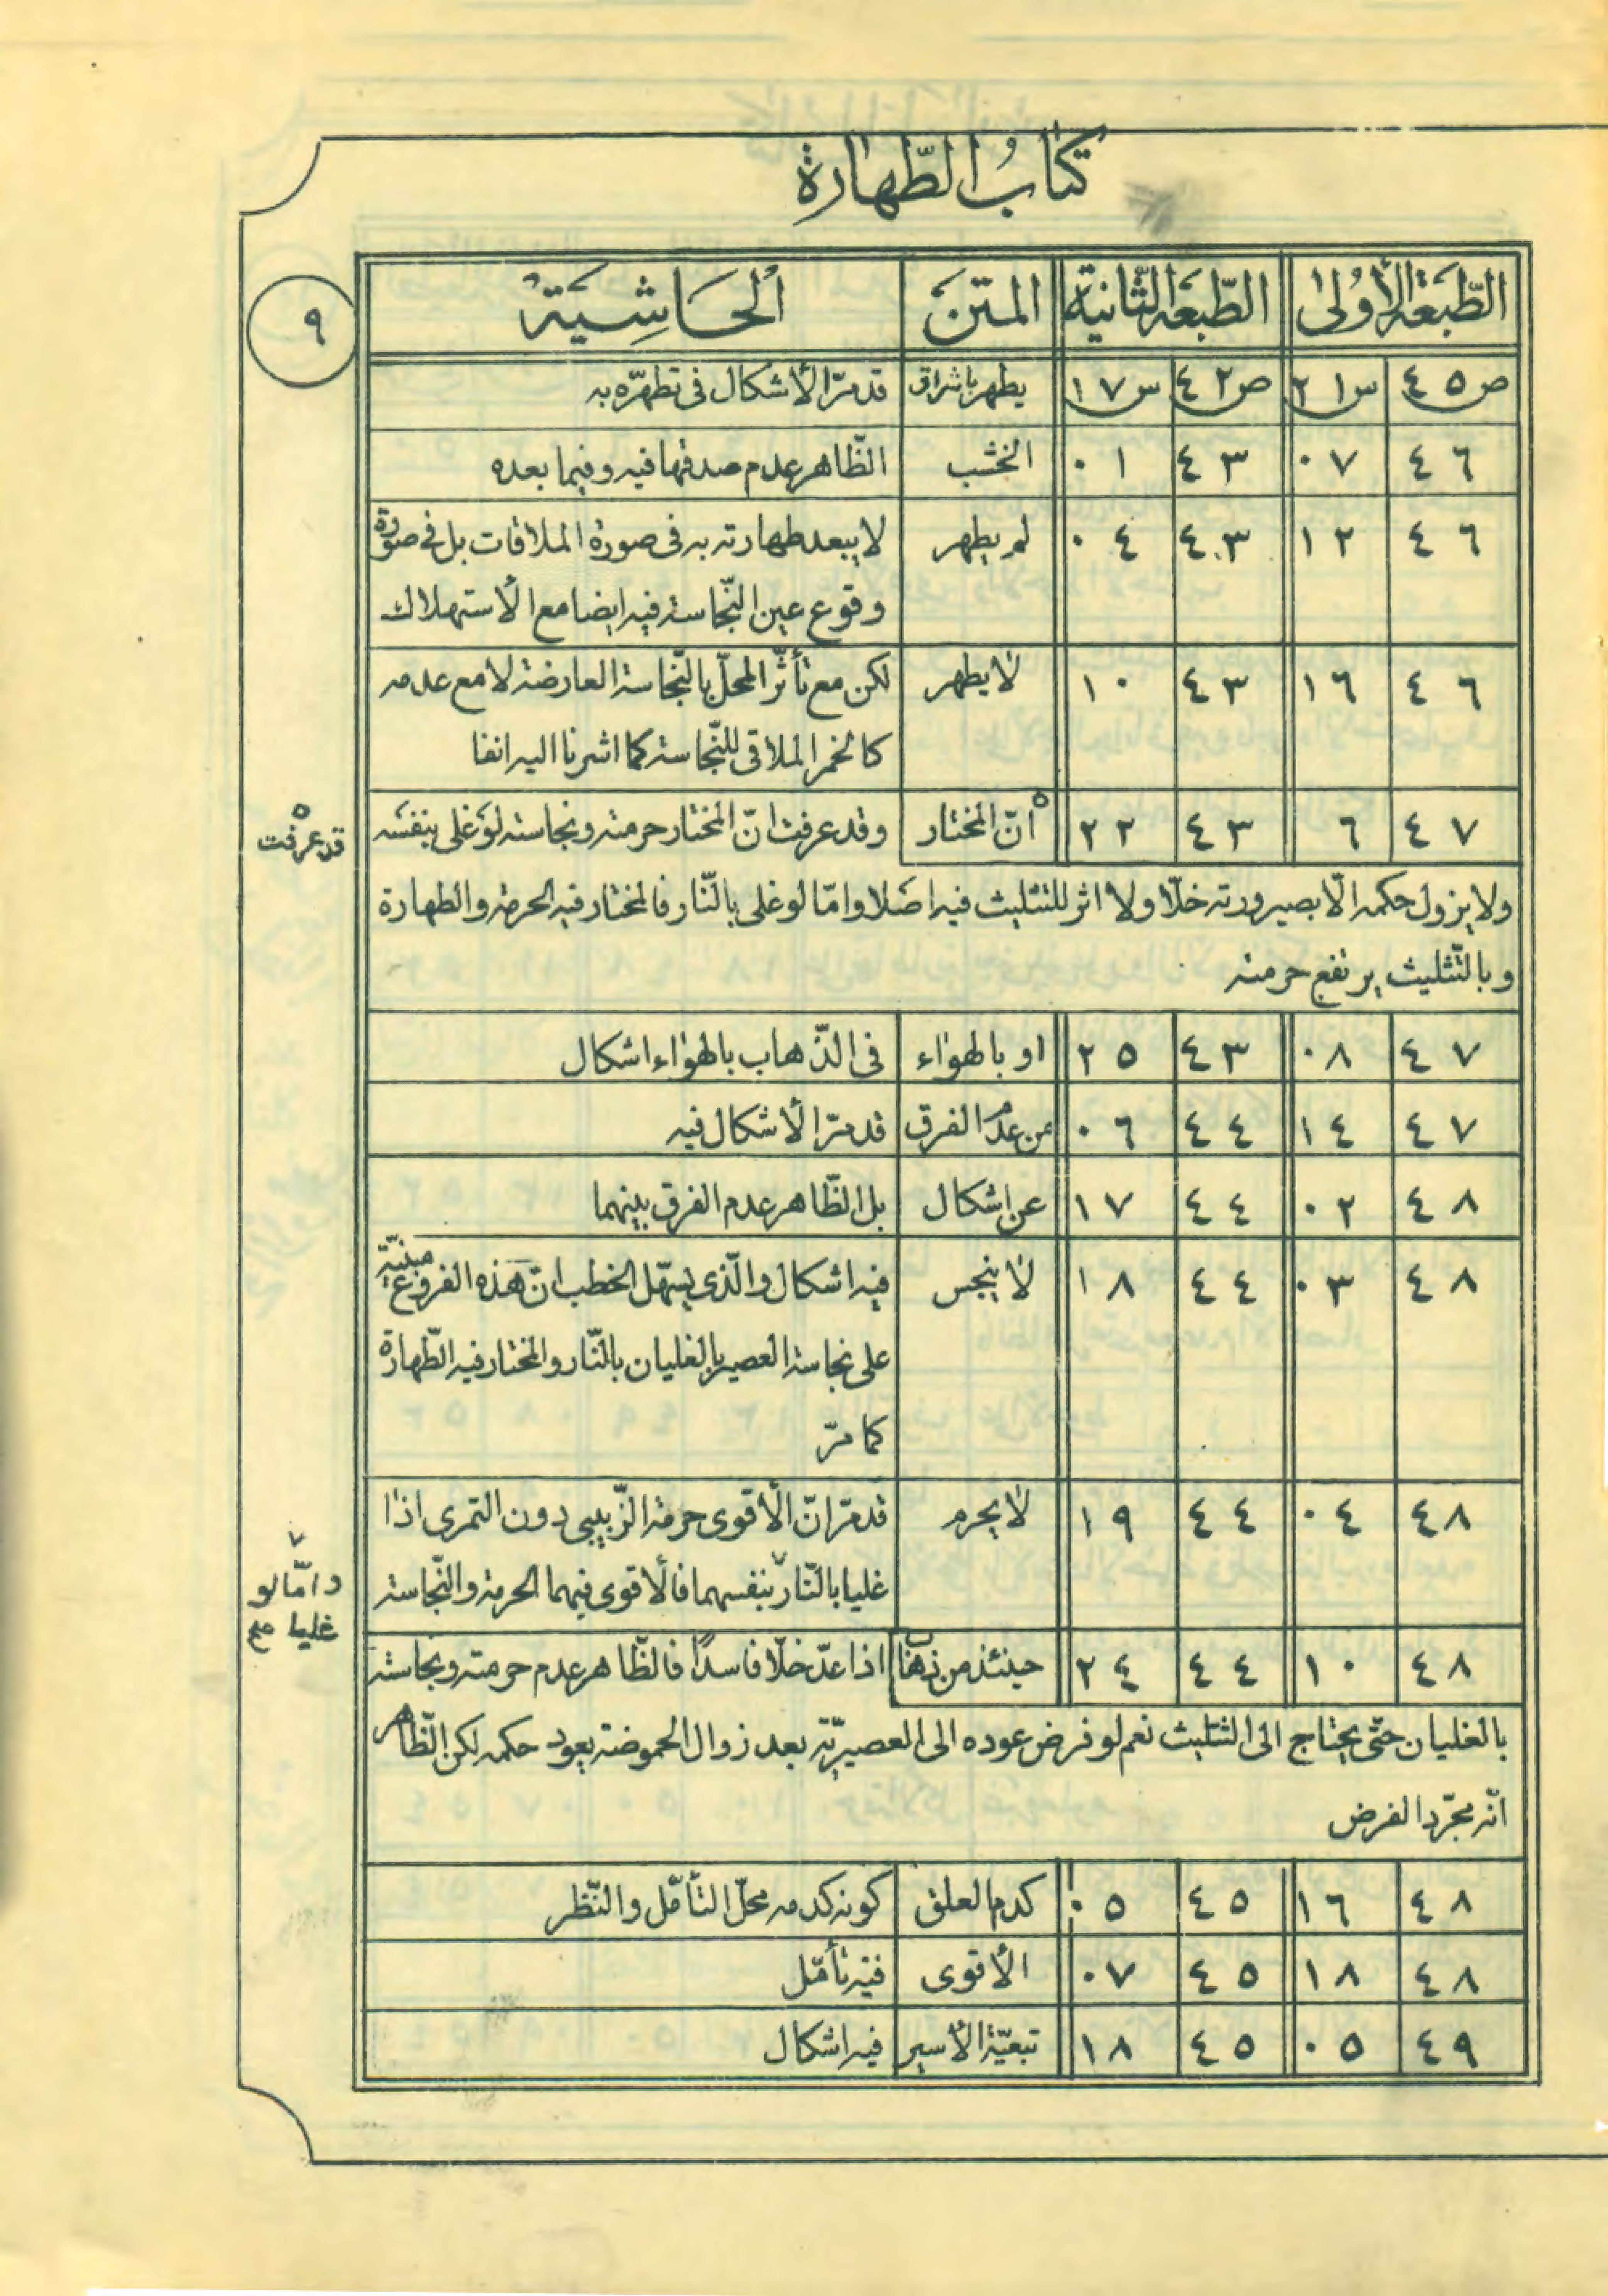 كتاب الطّهارة
٩
الطّبعة الأولى الطّبعة الثّانية المتن الحاشية
ص ٤٥ س ٢١ ص ٤٢ س ١٧ يطهر باشراق قد مرّ الأشكال فى تطهّره به
٤٦ ٠٧ ٤٣ ٠١ الخشب الظّاهر عدم صدقها فيه وفيما بعده
٤٦ ١٢ ٤٣ ٠٤ لم يطهر لا يبعد طهارته به فى صورة الملاقات بل فى صورة
وقوع عين النّجاسة فيه ايضا مع الأستهلاك
٤٦ ١٦ ٤٣ ١٠ لا يطهر لكن مع تأثّر المحلّ بالنّجاسة العارضة لا مع عدمه
كالخمر الملاقى للنّجاسة كما اشرنا اليه انفا
٤٧ ٦ ٤٣ ٢٢ انّ المختار وقد عرفت انّ المختار حرمته ونجاسته لو غلى بنفسه
قد عرفت
ولا يزول حكمه الّا بصيرورته خلّا ولا اثر للتثليث فيه اصلا وامّا لو غلى بالنّار فالمختار فيه الحرمة والطهارة
وبالتّثليث يرتفع حرمته
٤٧ ٠٨ ٤٣ ٢٥ او بالهواء فى الذّهاب بالهواء اشكال
٤٧ ١٤ ٤٤ ٠٦ من عدم الفرق قد مرّ الأشكال فيه
٤٨ ٠٢ ٤٤ ١٧ عن اشكال بل الظّاهر عدم الفرق بينهما
٤٨ ٠٣ ٤٤ ١٨ لا ينجس فيه اشكال والّذى يسهّل الخطب انّ هذه الفروع مبنيّة
على نجاسة العصير بالغليان بالنّار والمختار فيه الطّهارة
كما مرّ
٤٨ ٠٤ ٤٤ ١٩ لا يحرم قد مرّ انّ الأقوى حرمة الزّبيبى دون التمرى اذا
غليا بالنّار بنفسهما فالأقوى فيهما الحرمة والنّجاسة
وامّا لو
غليا
٤٨ ١٠ ٤٤ ٢٤ حينئذ من اذا عدّ خلّا فاسدًا فالظّاهر عدم حرمته ونجاسته
بالغليان حتّى يحتاج الى التثليث نعم لو فرض عوده الى العصيريّة بعد زوال الحموضة يعود حكمه لكن الظّاهر
انّه مجرّد الفرض
٤٨ ١٦ ٤٥ ٠٥ كدم العلق كونه كدمه محلّ التأمّل والنّظر
٤٨ ١٨ ٤٥ ٠٧ الأقوى فيه تأمّل
٤٩ ٠٥ ٤٥ ١٨ تبعيّة الأسير فيه اشكال